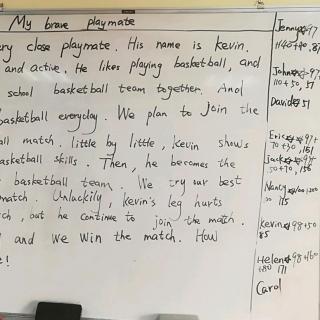 My brave playmate
ery close playmate. His name is kevin.
and active. He likes playing basketball, and
school basketball team together. And
basketball everyday. We plan to join the
ball match. little by little, kevin shows
asketball skills. Then, he becomes the
basketball team. We try our best
match. Unluckily, kevin's leg hurts
ch, but he continue to join the math.
and we win the match. How
e!
Jenny
John
110+50, 57
David 51
Eric
70+30, 151
Jack
50+70, 156
Nancy
115
Kevin 98+50
85
Helen 98+160
+80 171
Carol